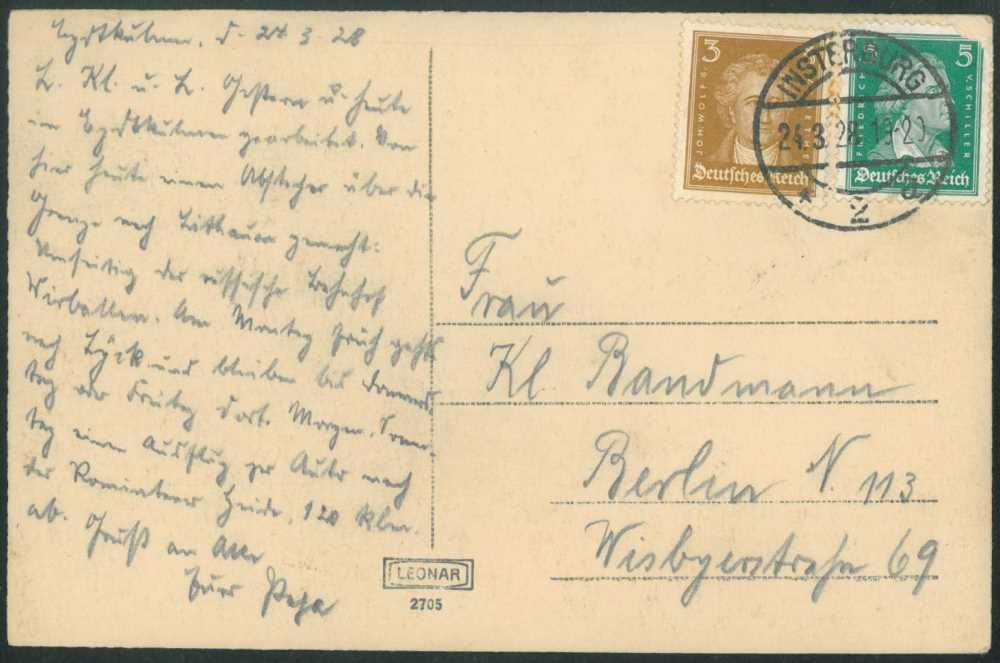 Eydtkuhnen, d. 24.3.28
L. Kl. u. L. Gestern u. heute
in Eydtkuhnen gearbeitet. Von
hier heute einen Abstecher über die
Grenze nach Littauen gemacht:
Umseitig der russische Bahnhof
Wirballen. Am Montag früh geht's
nach Lyck und bleiben bis Donners-
tag oder Freitag dort. Morgen, Sonn-
tag einen Ausflug per Auto nach
der Rominter Heide, 120 klm.
ab. Gruß an Alle
Euer Papa
LEONAR
2705
3
JOH. WOLFG.
Deutsches Reich
5
FRIEDRICH V. SCHILLER
Deutsches Reich
INSTERBURG
24.3.28.19-20
* 2
Frau
Kl. Bandmann
Berlin N. 113
Wisbyerstraße 69